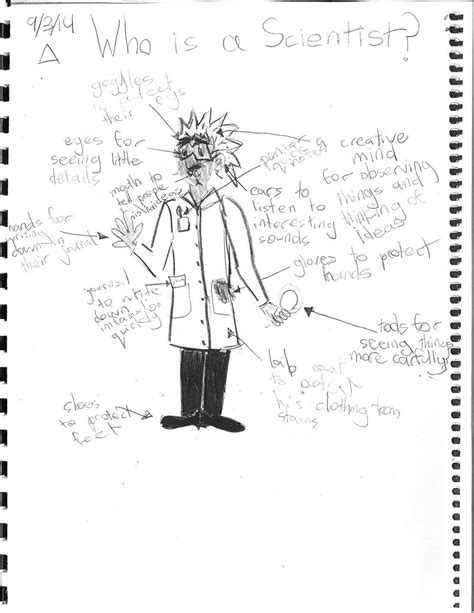 9/3/14
Who is a Scientist?
goggles
to protect
their eyes
eyes for
seeing little
details
mouth to
tell people
his ideas
hands for
writing
down in
their journal
journal
to write
down
information
quickly
shoes
to protect
feet
a creative
mind
for observing
things and
thinking of
ideas
ears to
listen to
interesting
sounds
gloves to protect
hands
tools for
seeing things
more carfully
lab coat
to protect
his clothing from
stains